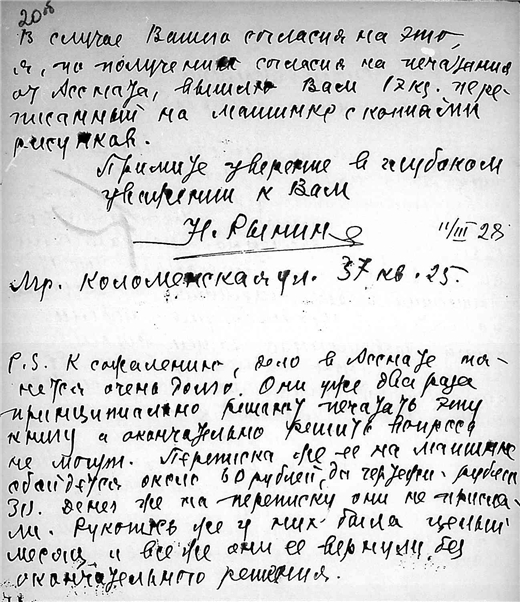 20об
В случае Вашего согласия на это,
я, по получении согласия на печатание
от Асснага, вышлю Вам 1 экз. пере-
писанный на машинке с копиями
рисунков.
Примите уверение в глубоком
уважении к Вам
Н. Рынин 11/III 28
Лгр. Коломенская ул. 37 кв. 25.
P.S. К сожалению, дело в Асснаге тя-
нется очень долго. Они уже два раза
принципиально решают печатать эту
книгу а окончательно решить вопроса
не могут. Переписка же ее на машинке
обойдется около 60 рублей, да чертежи рублей
30. Денег же на переписку они не присла-
ли. Рукопись же у них была целый
месяц и все же они ее вернули без
окончательного решения.